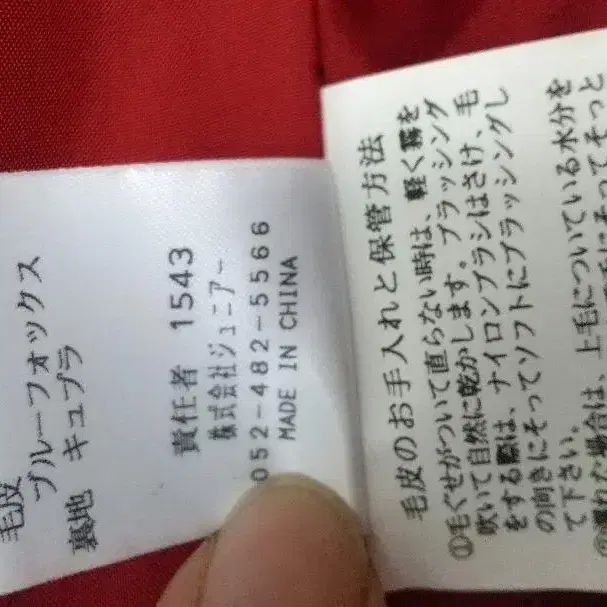 毛皮
ブルーフォックス
裏地 キュプラ
責任者 1543
株式会社ジュニアー
052-482-5566
MADE IN CHINA
毛皮のお手入れと保管方法
①毛ぐせがついて直らない時は、軽く霧を
吹いて自然に乾かします。ブラッシング
をする際は、ナイロンブラシはさけ、毛
の向きにそってソフトにブラッシングし
て下さい。
②濡れた場合は、上毛についている水分を
にそってそっと